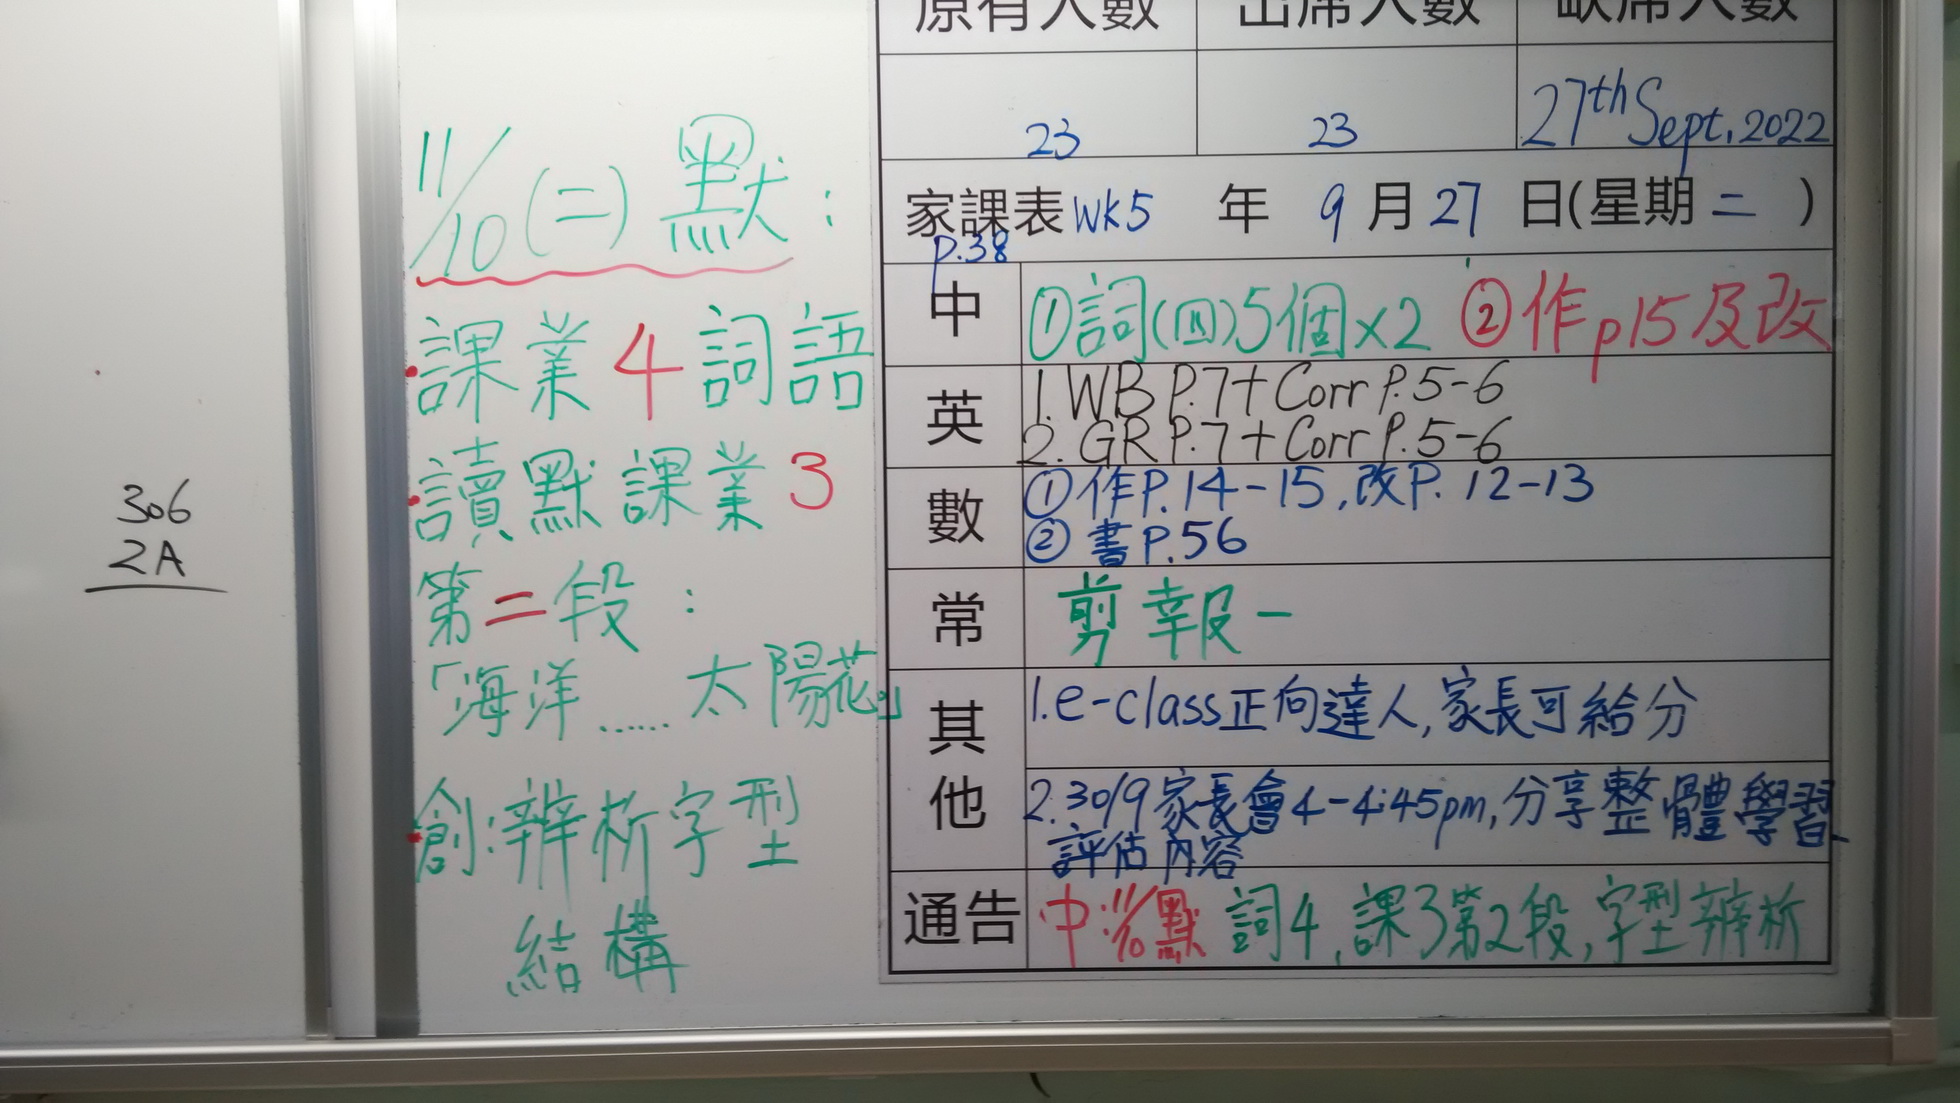 306
2A
11/10(二)默:
課業4詞語
讀默課業3
第二段:
「海洋……太陽花。」
創:辨析字型
結構
原有人數 出席人數 缺席人數
23 23 27th Sept. 2022
家課表 wk5 年 9月27日(星期二)
p.38
中 ①詞(四)5個×2 ②作p15及改
英 1. WB P.7 + Corr P.5-6
2. GR P.7 + Corr P.5-6
數 ①作P.14-15,改P.12-13
②書P.56
常 剪報一
其他 1.e-class正向達人,家長可給分
2.30/9家長會4-4:45pm,分享整體學習
評估內容
通告 中:11/10默 詞4,課3第2段,字型辨析